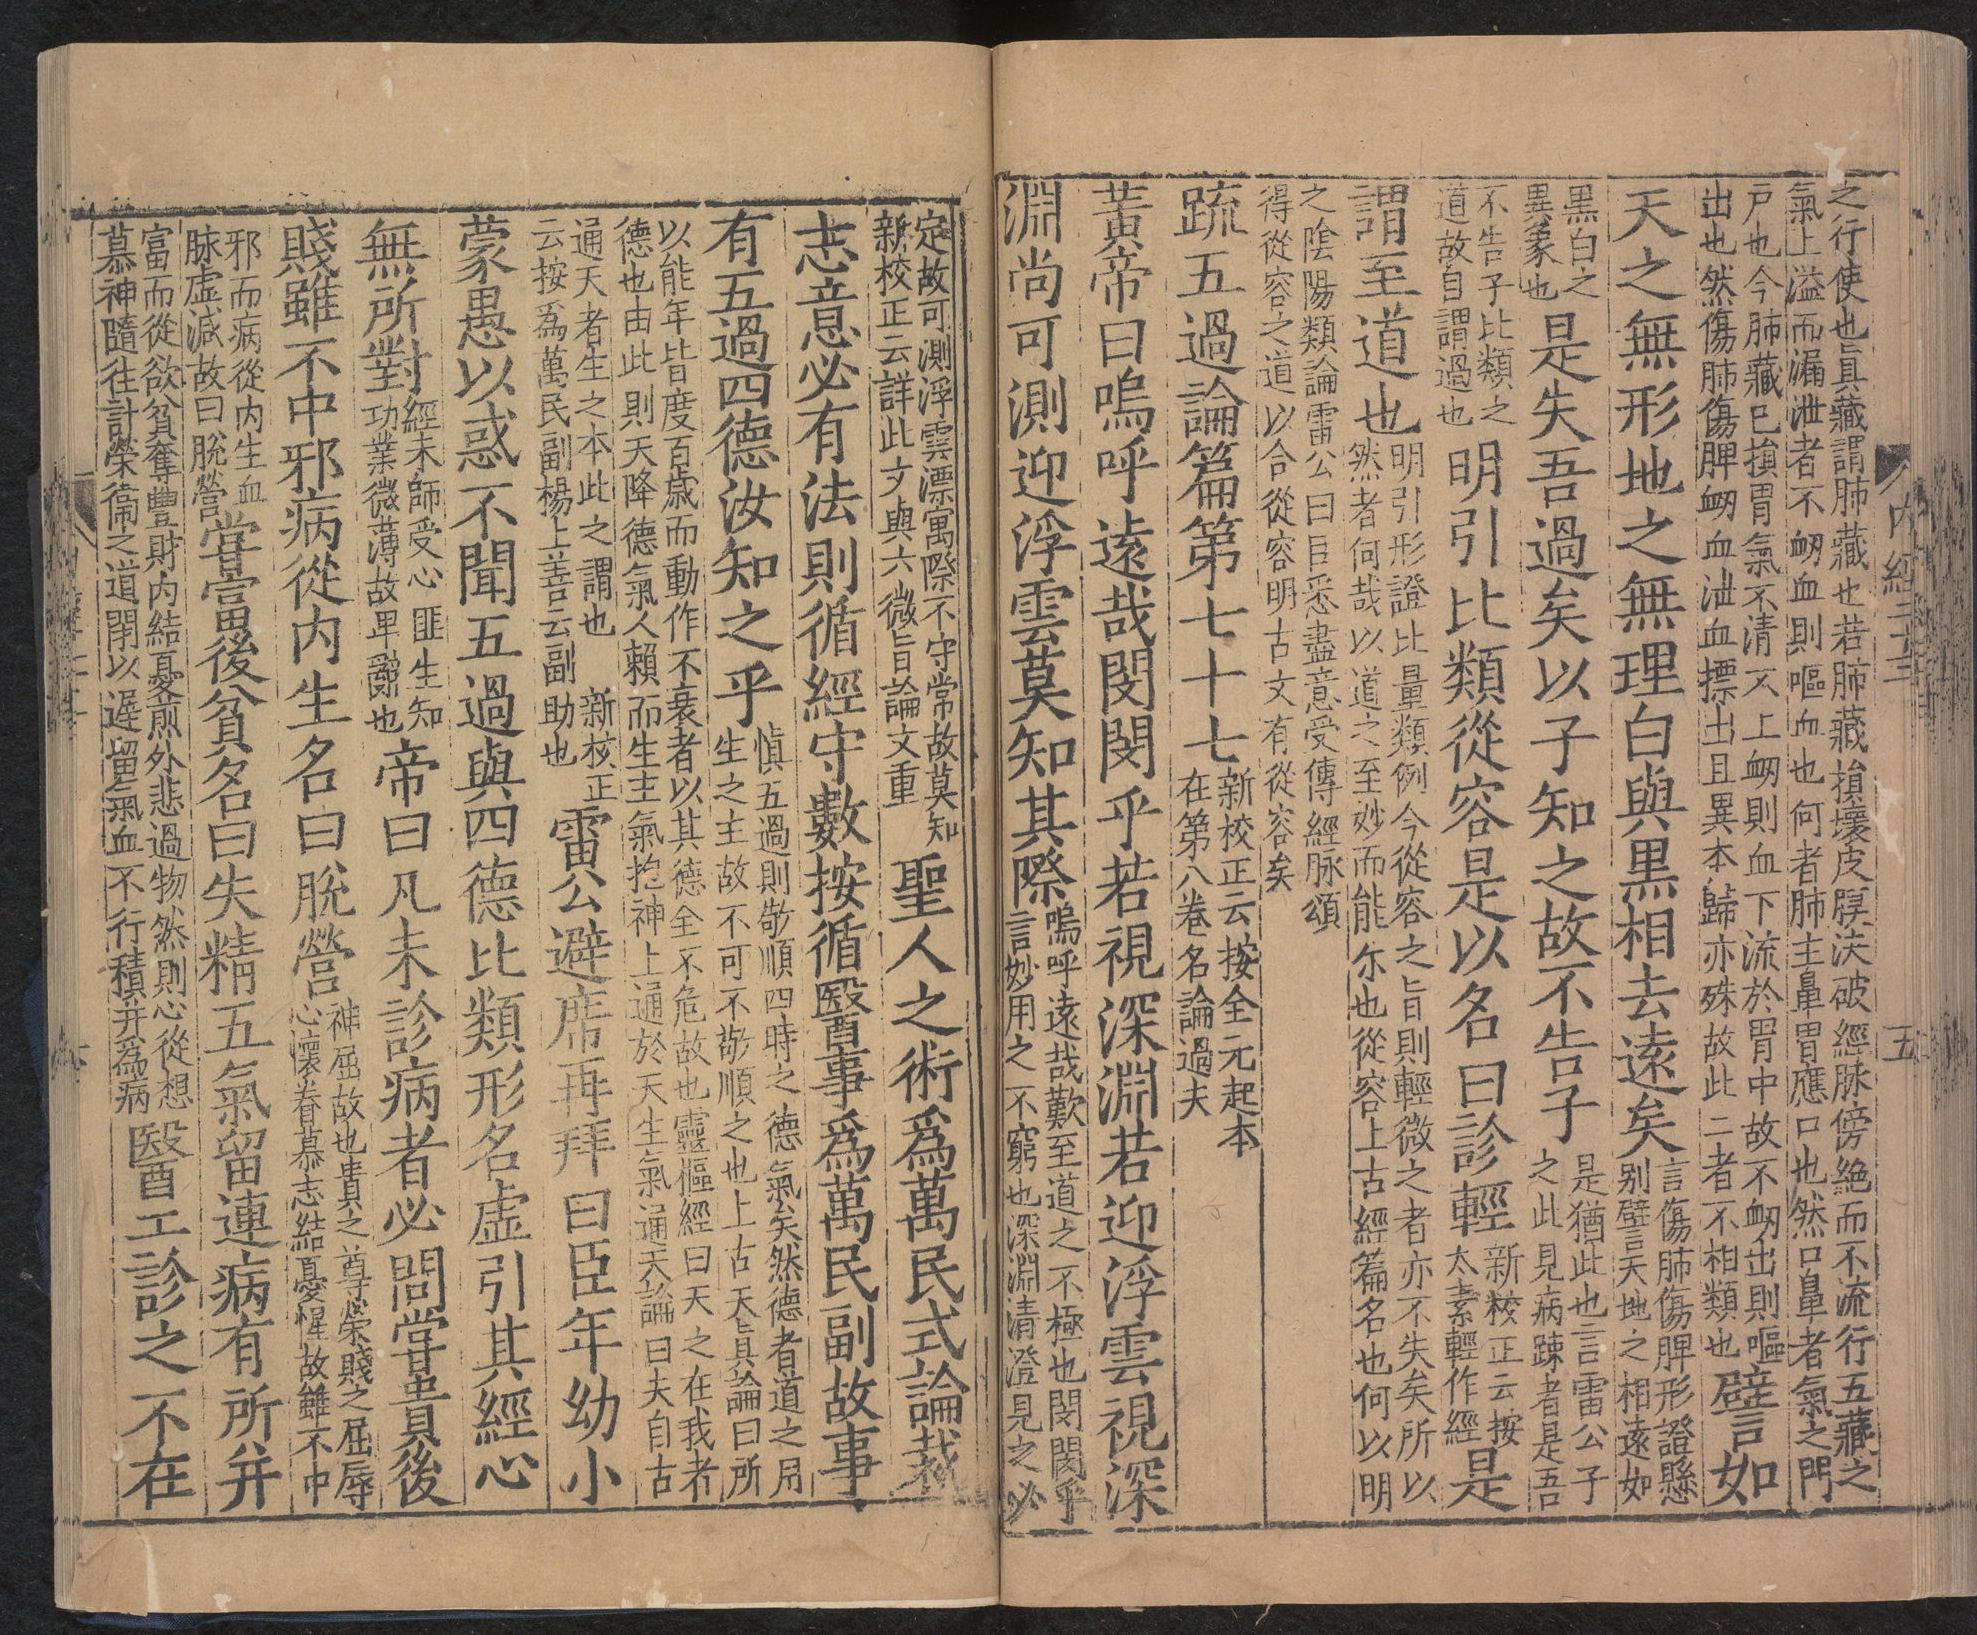 之行使也眞藏謂肺藏也若肺藏損壞皮膜決破經脉傍絶而不流行五藏之
氣上溢而漏泄者不衂血則嘔血也何者肺主鼻胃應口也然口鼻者氣之門
戸也今肺藏已損胃氣不清不上衂則血下流於胃中故不衂出則嘔
出也然傷肺傷脾衂血泄血摽出且異本歸亦殊故此二者不相類也
譬如
天之無形地之無理白與黒相去遠矣
言傷肺傷脾形證懸
别譬言天地之相遠如
黒白之
異象也
是失吾過矣以子知之故不告子
是猶此也言雷公子
之此見病踈者是吾
不告子比類之
道故自謂過也
明引比類從容是以名曰診輕
新校正云按
太素輕作經
是
謂至道也
明引形證比量類例今從容之旨則輕微之者亦不失矣所以
然者何哉以道之至妙而能尓也從容上古經篇名也何以明
之陰陽類論雷公曰臣悉盡意受傳經脉頌
得從容之道以合從容明古文有從容矣
疏五過論篇第七十七
新校正云按全元起本
在第八卷名論過夫
黃帝曰嗚呼遠哉閔閔乎若視深淵若迎浮雲視深
淵尚可測迎浮雲莫知其際
嗚呼遠哉歎至道之不極也閔閔乎
言妙用之不窮也深淵清澄見之必
定故可測浮雲漂寓際不守常故莫知
新校正云詳此文與六微旨論文重
聖人之術爲萬民式論裁
志意必有法則循經守數按循醫事爲萬民副故事
有五過四德汝知之乎
愼五過則敬順四時之德氣矣然德者道之用
生之主故不可不敬順之也上古天眞論曰所
以能年皆度百歲而動作不衰者以其德全不危故也靈樞經曰天之在我者
德也由此則天降德氣人賴而生主氣抱神上通於天生氣通天論曰夫自古
通天者生之本此之謂也　新校正
云按爲萬民副楊上善云副助也
雷公避席再拜曰臣年幼小
蒙愚以惑不聞五過與四德比類形名虚引其經心
無所對
經未師受心匪生知
功業微薄故卑辭也
帝曰凡未診病者必問甞貴後
賤雖不中邪病從内生名曰脫營
神屈故也貴之尊榮賤之屈辱
心懷眷慕志結憂惶故雖不中
邪而病從内生血
脉虚減故曰脫營
甞富後貧名曰失精五氣留連病有所并
富而從欲貧奪豐財内結憂煎外悲過物然則心從想
慕神隨往計榮衞之道閉以遲留氣血不行積并為病
醫工診之不在
内經二十三
五